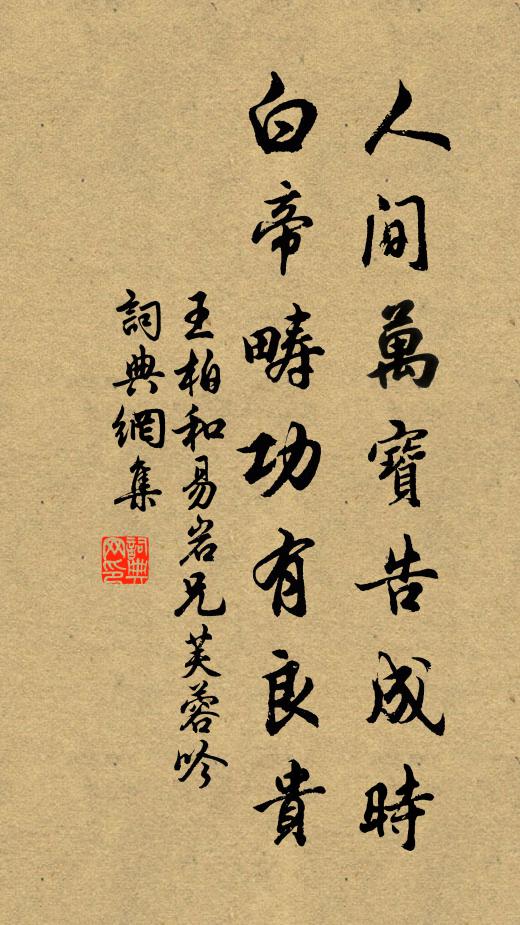 人間萬寶告成時
白帝疇功有良貴
王柏和易岩兄芙蓉吟
詞典網集
詞典網印